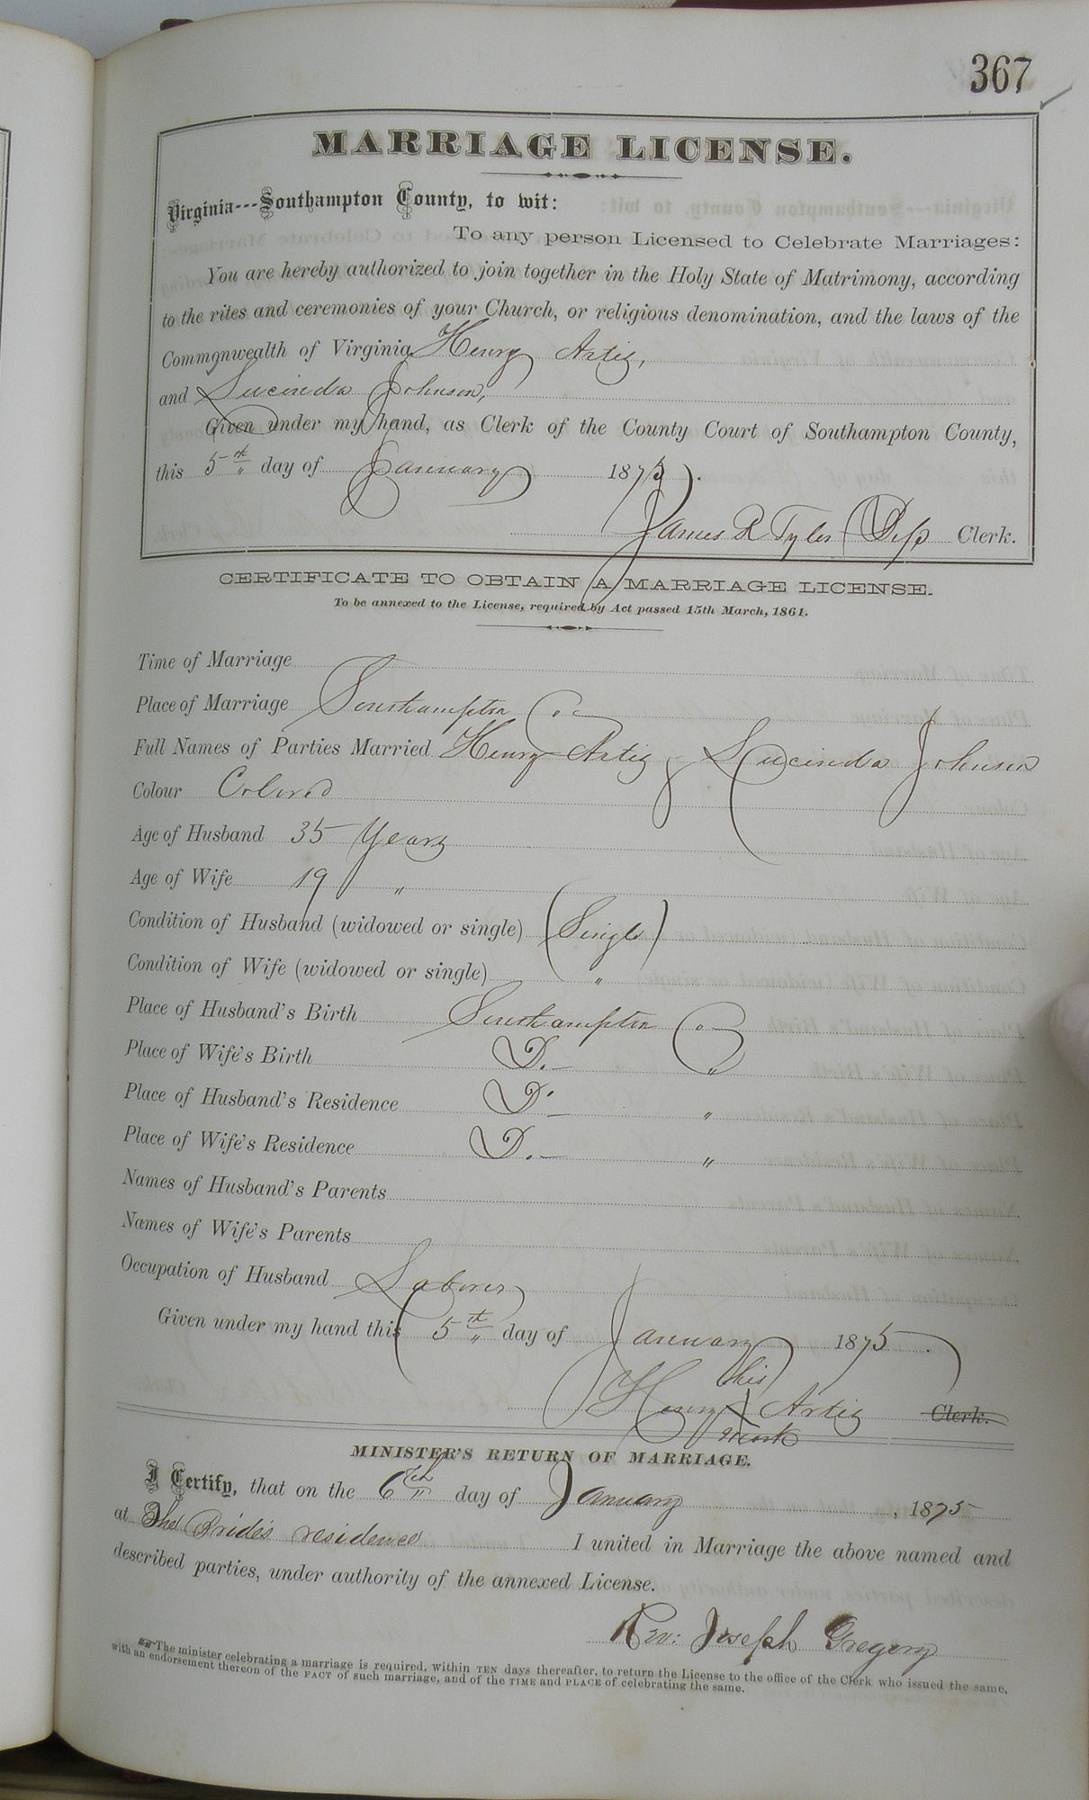 367
MARRIAGE LICENSE.
Virginia---Southampton County, to wit:
To any person Licensed to Celebrate Marriages:
You are hereby authorized to join together in the Holy State of Matrimony, according
to the rites and ceremonies of your Church, or religious denomination, and the laws of the
Commonwealth of Virginia Henry Artis,
and Lucinda Johnson,
Given under my hand, as Clerk of the County Court of Southampton County,
this 5th day of January 1875.
James R Tyler Dep Clerk.
CERTIFICATE TO OBTAIN A MARRIAGE LICENSE.
To be annexed to the License, required by Act passed 15th March, 1861.
Time of Marriage
Place of Marriage Southampton Co
Full Names of Parties Married Henry Artis & Lucinda Johnson
Colour Colored
Age of Husband 35 Years
Age of Wife 19 "
Condition of Husband (widowed or single) Single
Condition of Wife (widowed or single) "
Place of Husband's Birth Southampton Co
Place of Wife's Birth Do "
Place of Husband's Residence Do "
Place of Wife's Residence Do "
Names of Husband's Parents
Names of Wife's Parents
Occupation of Husband Laborer
Given under my hand this 5th day of January 1875.
his
Henry X Artis Clerk.
mark
MINISTER'S RETURN OF MARRIAGE.
I Certify, that on the 6th day of January, 1875
at The Bride's residence I united in Marriage the above named and
described parties, under authority of the annexed License.
Rev: Joseph Gregory
The minister celebrating a marriage is required, within TEN days thereafter, to return the License to the office of the Clerk who issued the same,
with an endorsement thereon of the FACT of such marriage, and of the TIME and PLACE of celebrating the same.